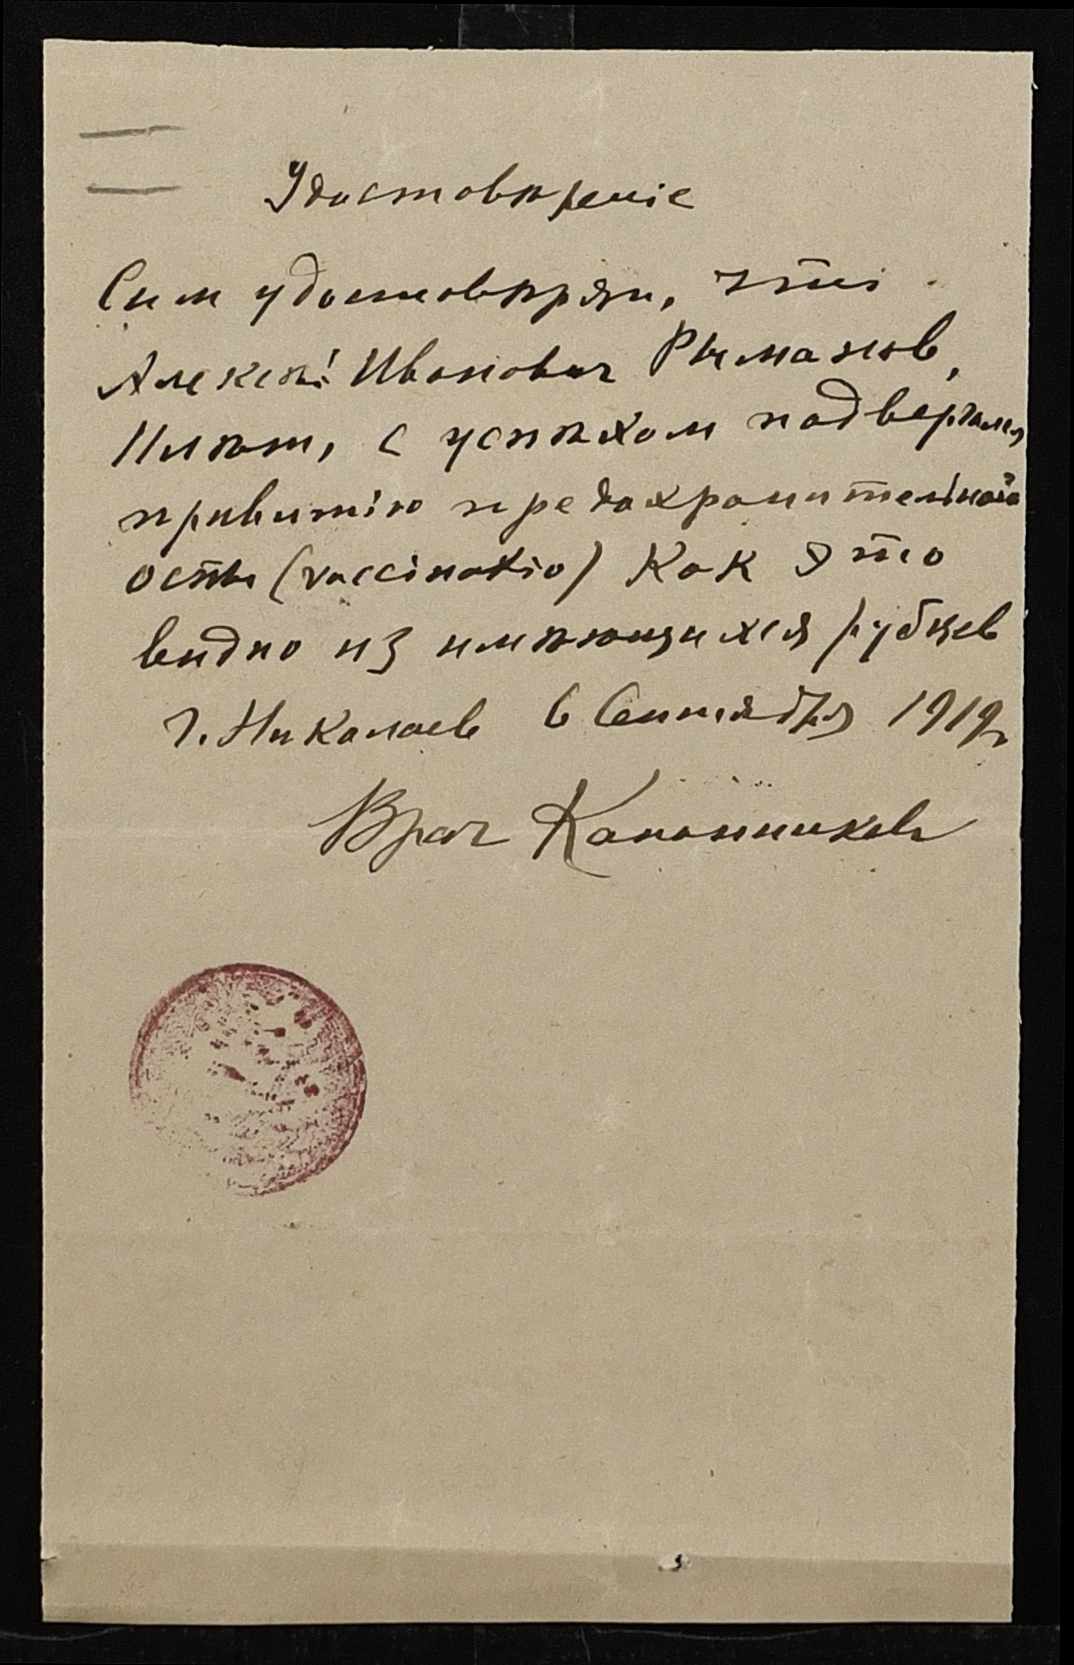 Удостовѣреніе
Сим удостовѣряю, что
Алексѣй Иванович Рыманов,
с успѣхом подвергался
привитію предохранительной
оспы (vaccinatio) как это
видно из имѣющихся рубцев
г. Николаев 6 Сентября 1919г
Врач